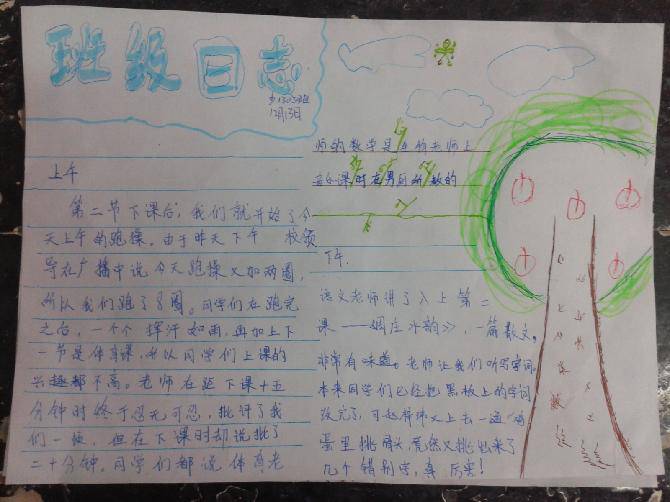 班级日志
12月13日
上午
第二节下课后,我们就开始了今
天上午的跑操。由于昨天下午 校领
导在广播中说今天跑操又加两圈,
所以我们跑了8圈。同学们在跑完
之后,一个个挥汗如雨,再加上下
一节是体育课,所以同学们上课的
兴趣都不高。老师在距下课十五
分钟时终于忍无可忍,批评了我
们一顿,但在下课时却说批了
二十分钟。同学们都说体育老
师的数学是生物老师上
课时在男厕所教的
下午
语文老师讲了入上第二
课——《 》,一篇散文。
非常有味道。老师让我们听写字词。
本来同学们已经把黑板上的字词
改完了,可赵 又上去一遍“鸡
蛋里挑骨头”,竟然又挑出来了
几个错别字,真厉害!